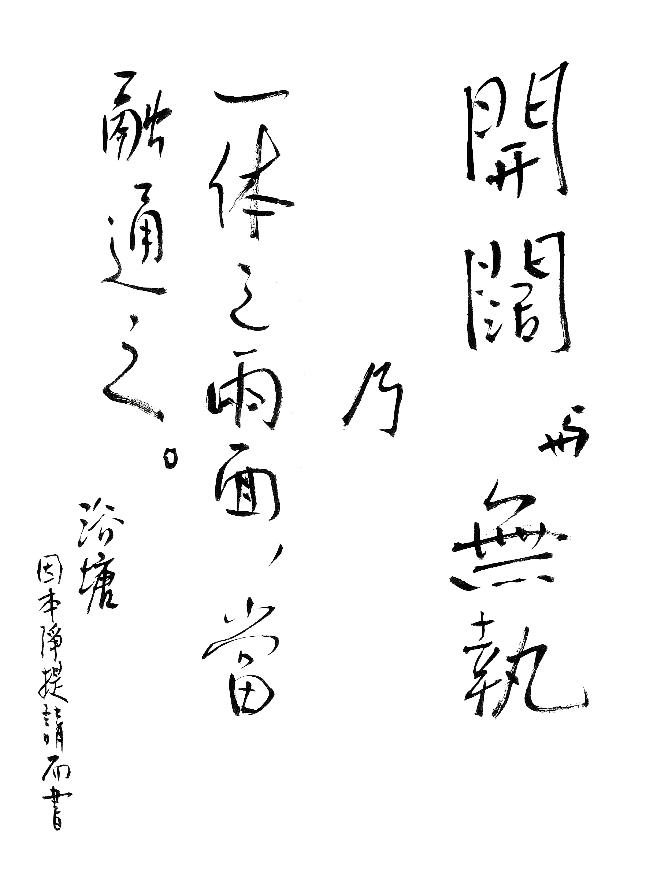 開闊與無執
乃
一体之兩面，當
融通之。
浴塘
因本淨提請而書